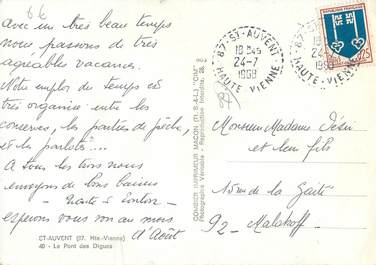 66
avec un très beau temps
nous passons de très
agréables vacances.
Notre emploi du temps est
très organisé entre les
conserves, les parties de pêche,
et les parlotes....
A tous les trois nous
envoyons de bons baisers
espérons vous voir au mois
d'Août
ST-AUVENT (87. Hte-Vienne)
40 - Le Pont des Digues
COMBIER IMPRIMEUR MACON (TI.-S.-&-L.) "CIM"
Photographie Véritable - Reproduction Interdite
87 - ST-AUVENT
18 H45
24-7
1968
HAUTE-VIENNE
87 - ST-AUVENT
18 H45
24-7
1968
HAUTE-VIENNE
REPUBLIQUE FRANCAISE
0,25
Monsieur Madame
et leur fils
15 rue de la Gaité
92 - Malakoff